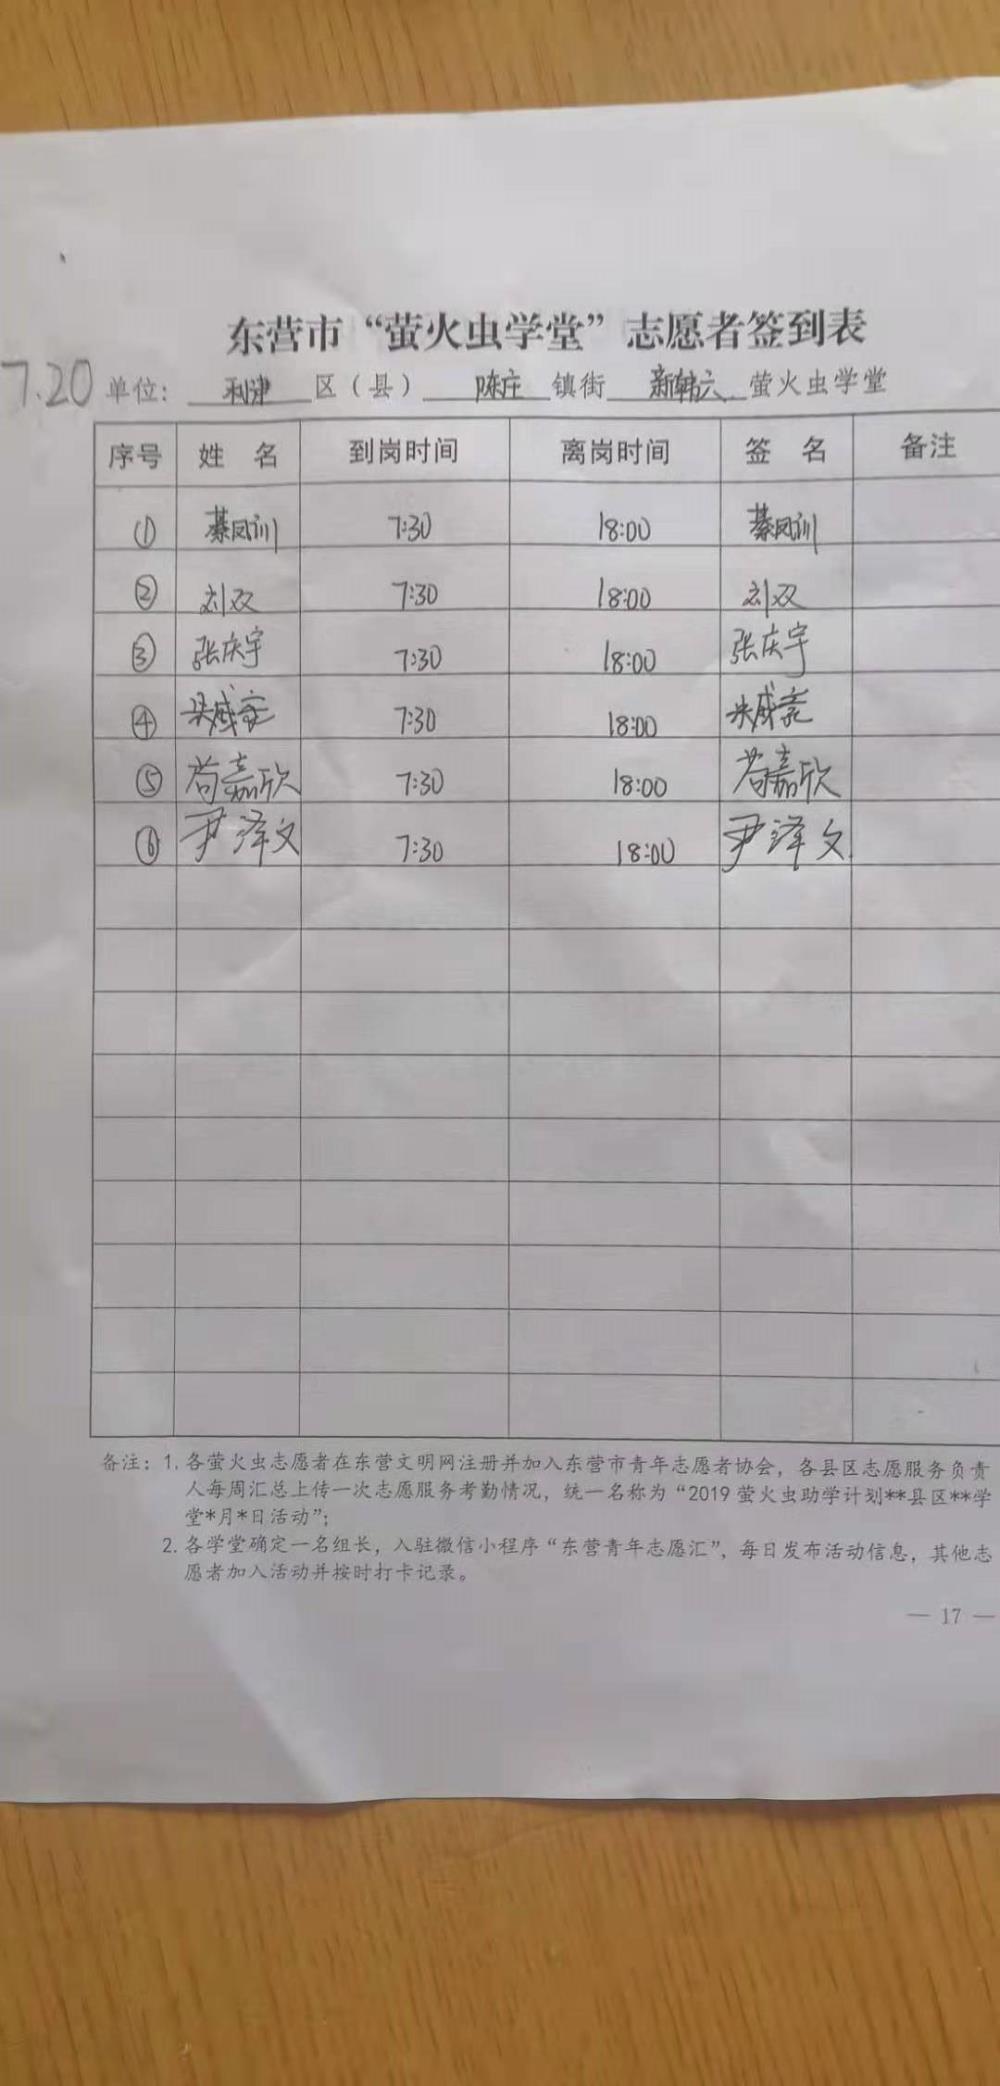 东营市“萤火虫学堂”志愿者签到表
7.20 单位: 利津 区(县) 陈庄 镇街 新韩六 萤火虫学堂
序号 姓 名 到岗时间 离岗时间 签 名 备注
① 綦凤训 7:30 18:00 綦凤训
② 刘双 7:30 18:00 刘双
③ 张庆宇 7:30 18:00 张庆宇
④ 7:30 18:00
⑤ 苟嘉欣 7:30 18:00 苟嘉欣
⑥ 尹泽文 7:30 18:00 尹泽文
备注: 1. 各萤火虫志愿者在东营文明网注册并加入东营市青年志愿者协会,各县区志愿服务负责
人每周汇总上传一次志愿服务考勤情况,统一名称为“2019萤火虫助学计划**县区**学
堂*月*日活动”;
2. 各学堂确定一名组长,入驻微信小程序“东营青年志愿汇”,每日发布活动信息,其他志
愿者加入活动并按时打卡记录。
— 17 —